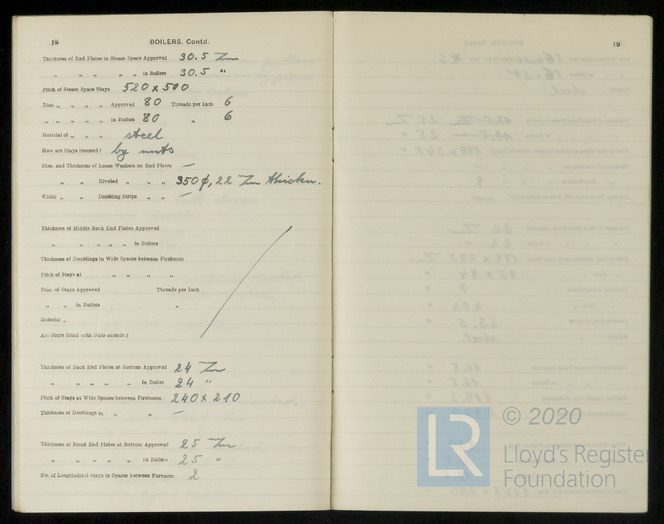 18
BOILERS, Contd.
Thickness of End Plates in Steam Space Approved 30.5 m/m
" " " " " in Boilers 30.5 "
Pitch of Steam Space Stays 520 x 500
Diar. " " " " Approved 80 Threads per Inch 6
" " " " in Boilers 80 " 6
Material of " " " steel
How are Stays Secured? by nuts
Diar. and Thickness of Loose Washers on End Plates —
" " Riveted " " " 350 φ, 22 m/m thickn.
Width " " Doubling Strips " " —
Thickness of Middle Back End Plates Approved
" " " " " in Boilers
Thickness of Doublings in Wide Spaces between Fireboxes
Pitch of Stays at " " " "
Diar. of Stays Approved Threads per Inch
" " in Boilers "
Material "
Are Stays fitted with Nuts outside?
Thickness of Back End Plates at Bottom Approved 24 m/m
" " " " " in Boiler 24 "
Pitch of Stays at Wide Spaces between Fireboxes 240 x 210
Thickness of Doublings in " " —
Thickness of Front End Plates at Bottom Approved 25 m/m
" " " " " in Boilers 25 "
No. of Longitudinal Stays in Spaces between Furnaces 2
19
© 2020
LR
Lloyd's Register
Foundation